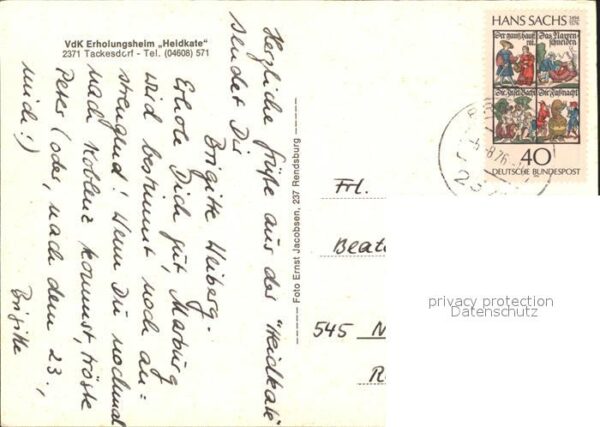 VdK Erholungsheim „Heidkate"
2371 Tackesdorf - Tel. (04608) 571
Herzliche Grüße aus der "Heidkate"
sendet Dir
Brigitte Heiberg.
Erhole Dich gut, Marburg
wird bestimmt noch an-
strengend! Wenn Du nochmal
nach Koblenz kommst, tröste
Peter (oder, nach dem 23.,
mich!)
Brigitte
Foto Ernst Jacobsen, 237 Rendsburg
HANS SACHS 1494 1576
Der gantz hauß rat
Das Narren schneiden
Die Insel Bachi
Die Faßnacht
40
DEUTSCHE BUNDESPOST
-8.76
23
Frl.
Beat
545 N
R
privacy protection
Datenschutz